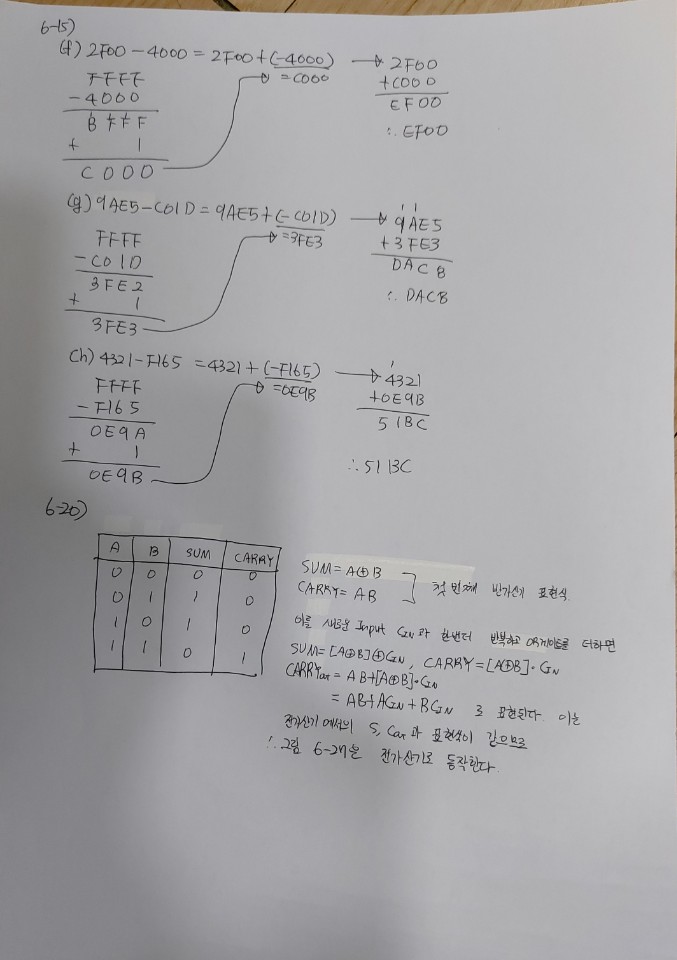 6-15)
(f) 2F00 - 4000 = 2F00 + (-4000)
= C000
FFFF
- 4000
BFFF
+ 1
C000
2F00
+C000
EF00
∴ EF00
(g) 9AE5 - C01D = 9AE5 + (-C01D)
= 3FE3
FFFF
- C01D
3FE2
+ 1
3FE3
1 1
9AE5
+ 3FE3
DAC8
∴ DAC8
(h) 4321 - F165 = 4321 + (-F165)
= 0E9B
FFFF
- F165
0E9A
+ 1
0E9B
1
4321
+0E9B
51BC
∴ 51BC
6-20)
A B SUM CARRY
0 0 0 0
0 1 1 0
1 0 1 0
1 1 0 1
SUM = A⊕B
CARRY = AB
첫 번째 반가산기 표현식.
이를 새로운 Input CIN과 한번더 반복하고 OR게이트를 더하면
SUM = [A⊕B]⊕CIN, CARRY = [A⊕B]·CIN
CARRYout = AB+[A⊕B]·CIN
= AB+ACIN+BCIN 로 표현된다. 이는
전가산기에서의 S, Cout과 표현식이 같으므로
∴ 그림 6-27은 전가산기로 동작한다.